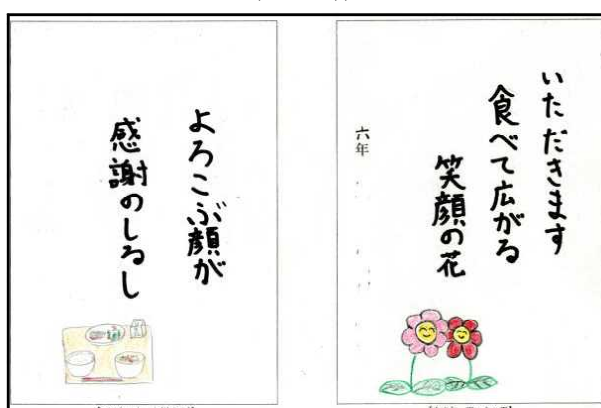 いただきます
食べて広がる
笑顔の花
六年
よろこぶ顔が
感謝のしるし